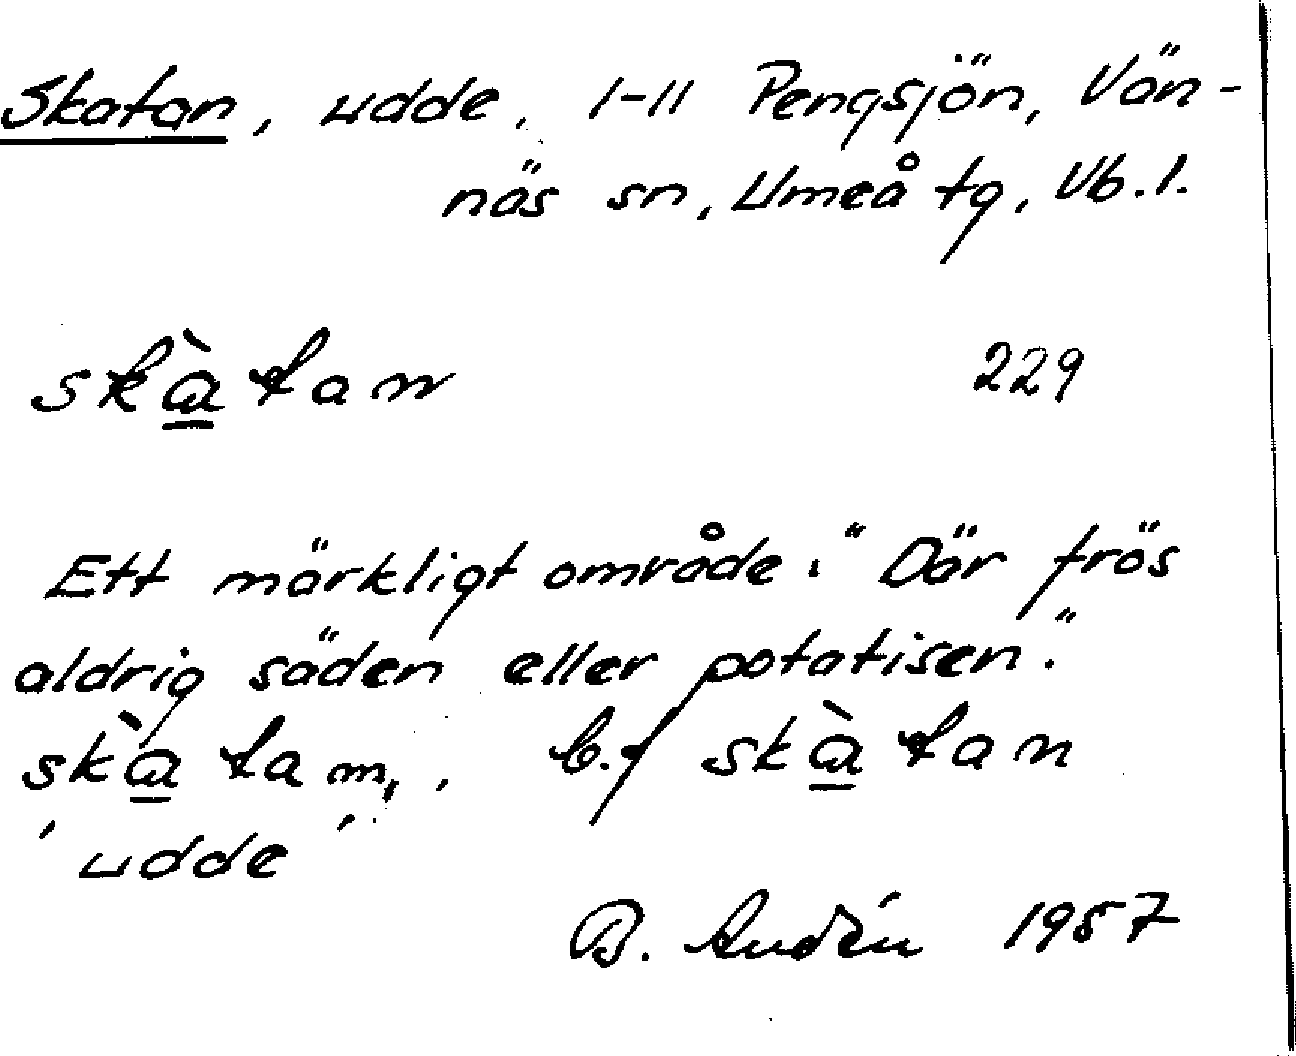 Skatan, udde, I-II Pengsjön, Vän-
näs sn, Umeå tg, Vb.l.
skà̱tan 229
Ett märkligt område. "Där frös
aldrig säden eller potatisen."
skà̱ta m., b.f skà̱tan
'udde'
B. Audén 1957